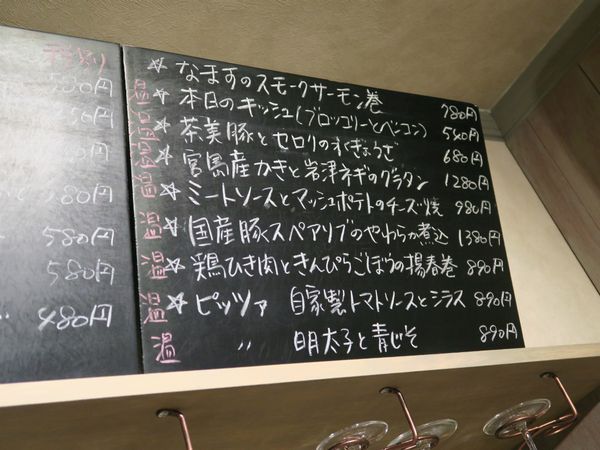 580円
580円
580円
480円
☆ なますのスモークサーモン巻 780円
温 ☆ 本日のキッシュ(ブロッコリーとベーコン) 540円
温 ☆ 茶美豚とセロリの水ぎょうざ 680円
温 ☆ 宮島産かきと岩津ネギのグラタン 1280円
温 ☆ ミートソースとマッシュポテトのチーズ焼 980円
温 国産豚スペアリブのやわらか煮込 1380円
温 ☆ 鶏ひき肉ときんぴらごぼうの揚春巻 890円
温 ☆ ピッツァ 自家製トマトソースとシラス 890円
温 〃 明太子と青じそ 890円